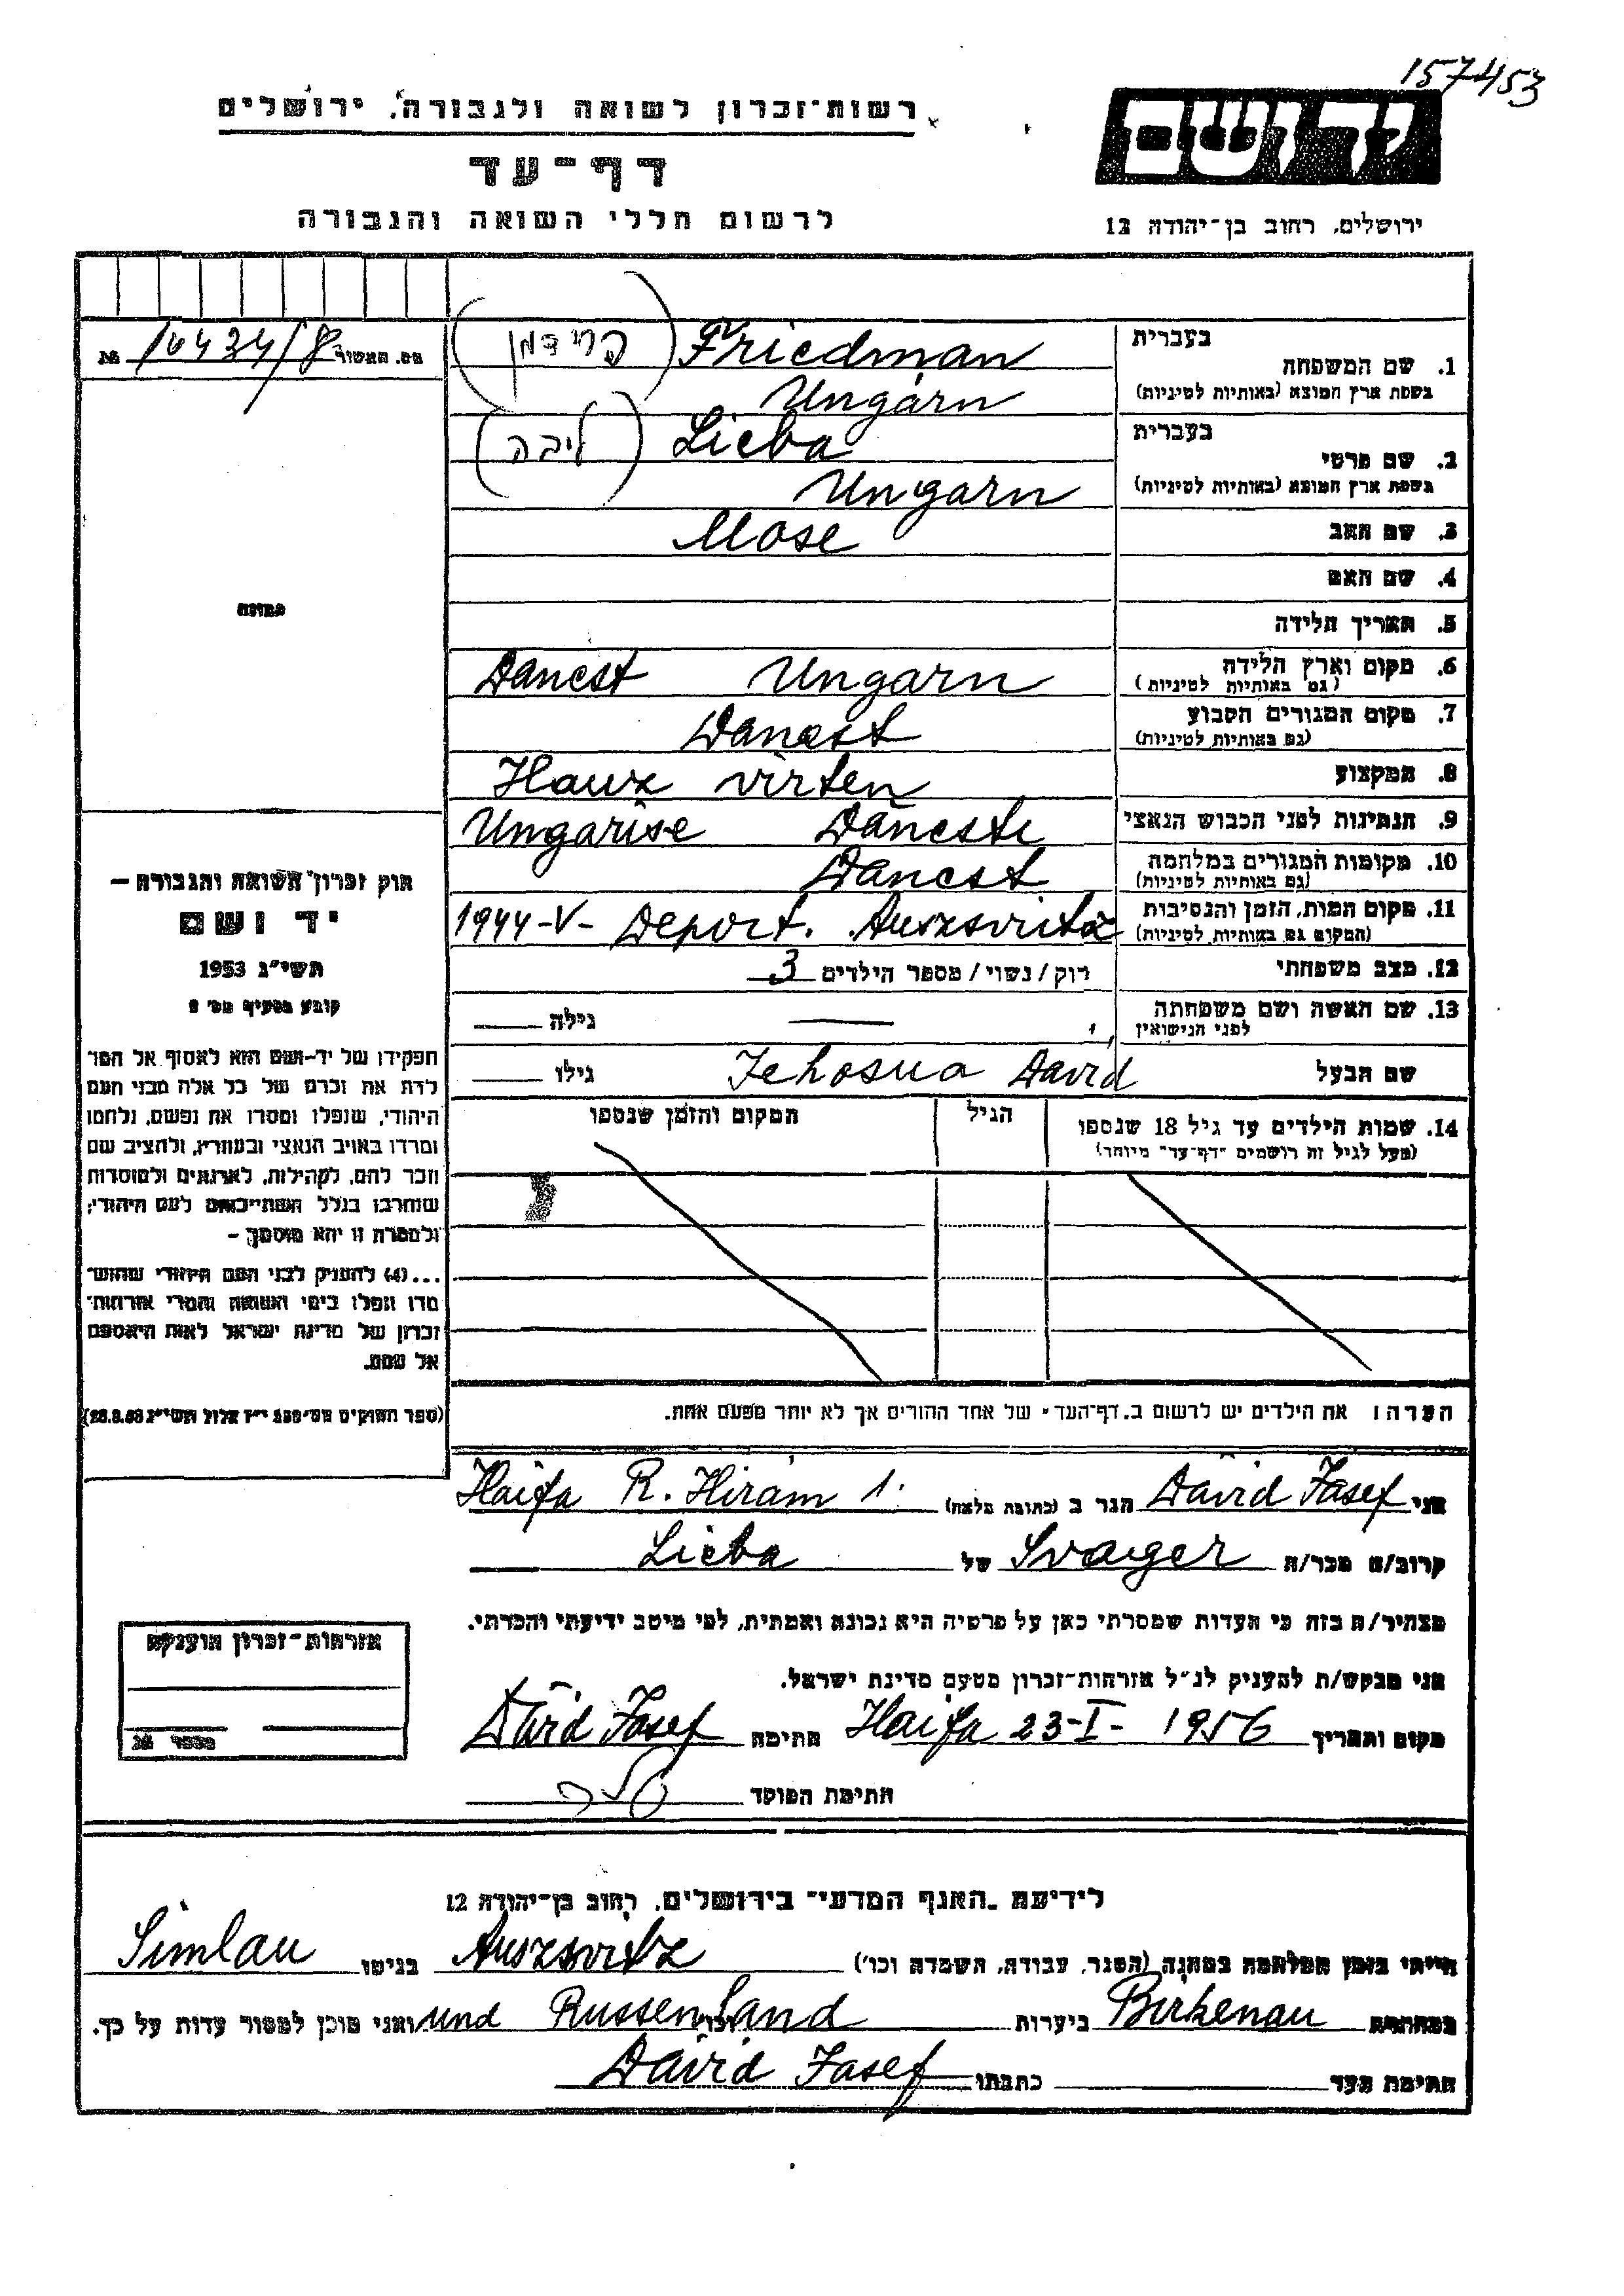 157453
רשות־זכרון לשואה ולגבורה, ירושלים
יד ושם
דף־עד
לרשום חללי השואה והגבורה
ירושלים, רחוב בן־יהודה 12
בעברית
1. שם המשפחה
בשפת ארץ המוצא (באותיות לטיניות)
Friedman (פרידמן)
Ungárn
מס. האשור №
בעברית
2. שם פרטי
בשפת ארץ המוצא (באותיות לטיניות)
Lieba (ליבה)
Ungarn
3. שם האב Mose
4. שם האם
תמונה
5. תאריך הלידה
6. מקום וארץ הלידה
(גם באותיות לטיניות)
Danest Ungarn
7. מקום המגורים הקבוע
(גם באותיות לטיניות)
Danest
8. המקצוע Hauz virten
9. הנתינות לפני הכבוש הנאצי Ungarise Danesti
10. מקומות המגורים במלחמה
(גם באותיות לטיניות)
Danest
11. מקום המות, הזמן והנסיבות
(המקום גם באותיות לטיניות)
1944-V- Deport. Auszsvitz
12. מצב משפחתי רוק/נשוי/ מספר הילדים 3
13. שם האשה ושם משפחתה
לפני הנישואין
גילה
שם הבעל Jehosua David גילו
14. שמות הילדים עד גיל 18 שנספו
(מעל לגיל זה רושמים "דף־עד" מיוחד)
הגיל
המקום והזמן שנספו
חוק זכרון השואה והגבורה —
יד ושם
תשי"ג 1953
קובע בסעיף מס' 2
תפקידו של יד־ושם הוא לאסוף אל המו־
לדת את זכרם של כל אלה מבני העם
היהודי, שנפלו ומסרו את נפשם, נלחמו
ומרדו באויב הנאצי ובעוזריו, ולהציב שם
וזכר להם, לקהילות, לארגונים ולמוסדות
שנחרבו בגלל השתייכותם לעם היהודי;
ולמטרה זו יהא מוסמך –
...(4) להעניק לבני העם היהודי שהוש־
מדו ונפלו בימי השואה והמרי אזרחות־
זכרון של מדינת ישראל לאות היאספם
אל עמם.
(ספר החוקים מס' 132 י"ז אלול תשי"ג 28.8.53)
הערה: את הילדים יש לרשום ב"דף־העד" של אחד ההורים אך לא יותר מפעם אחת.
אני Dávid Jasef הגר ב (כתובת מלאה) Haifa R. Hirám 1.
קרוב/ה מכר/ה Svager של Lieba
מצהיר/ה בזה כי העדות שמסרתי כאן על פרטיה היא נכונה ואמתית, לפי מיטב ידיעתי והכרתי.
אני מבקש/ת להעניק לנ"ל אזרחות־זכרון מטעם מדינת ישראל.
מקום ותאריך Haifa 23-I- 1956 חתימה Dávid Jasef
חתימת הפוקד
אזרחות־זכרון הוענקה
מספר №
לידיעת "האגף המדעי" בירושלים, רחוב בן־יהודה 12
הייתי בזמן המלחמה במחנה (הסגר, עבודה, השמדה וכו') Auszsvitz בגיטו Simlau
במחתרת Birkenau ביערות Russenland und וכו' ואני מוכן למסור עדות על כך.
חתימת העד כתבתו Dávid Jasef